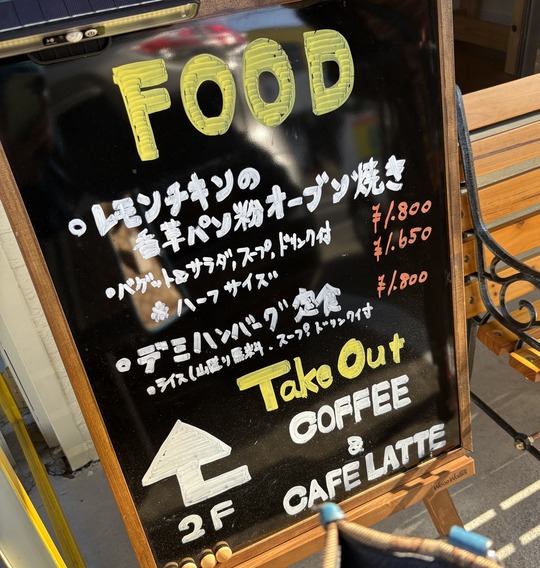 FOOD
• レモンチキンの
香草パン粉オーブン焼き
• バゲット&サラダ,スープ,ドリンク付 ¥1.800
※ ハーフサイズ ¥1.650
• デミハンバーグ定食 ¥1.800
• ライス(山盛り無料)、スープドリンク付
Take Out
COFFEE
&
CAFE LATTE
2F